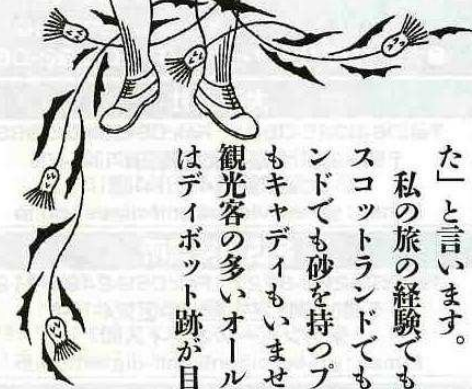 た」と言います。
私の旅の経験でも
スコットランドでも
ンドでも砂を持つプ
もキャディもいませ
観光客の多いオール
はディボット跡が目